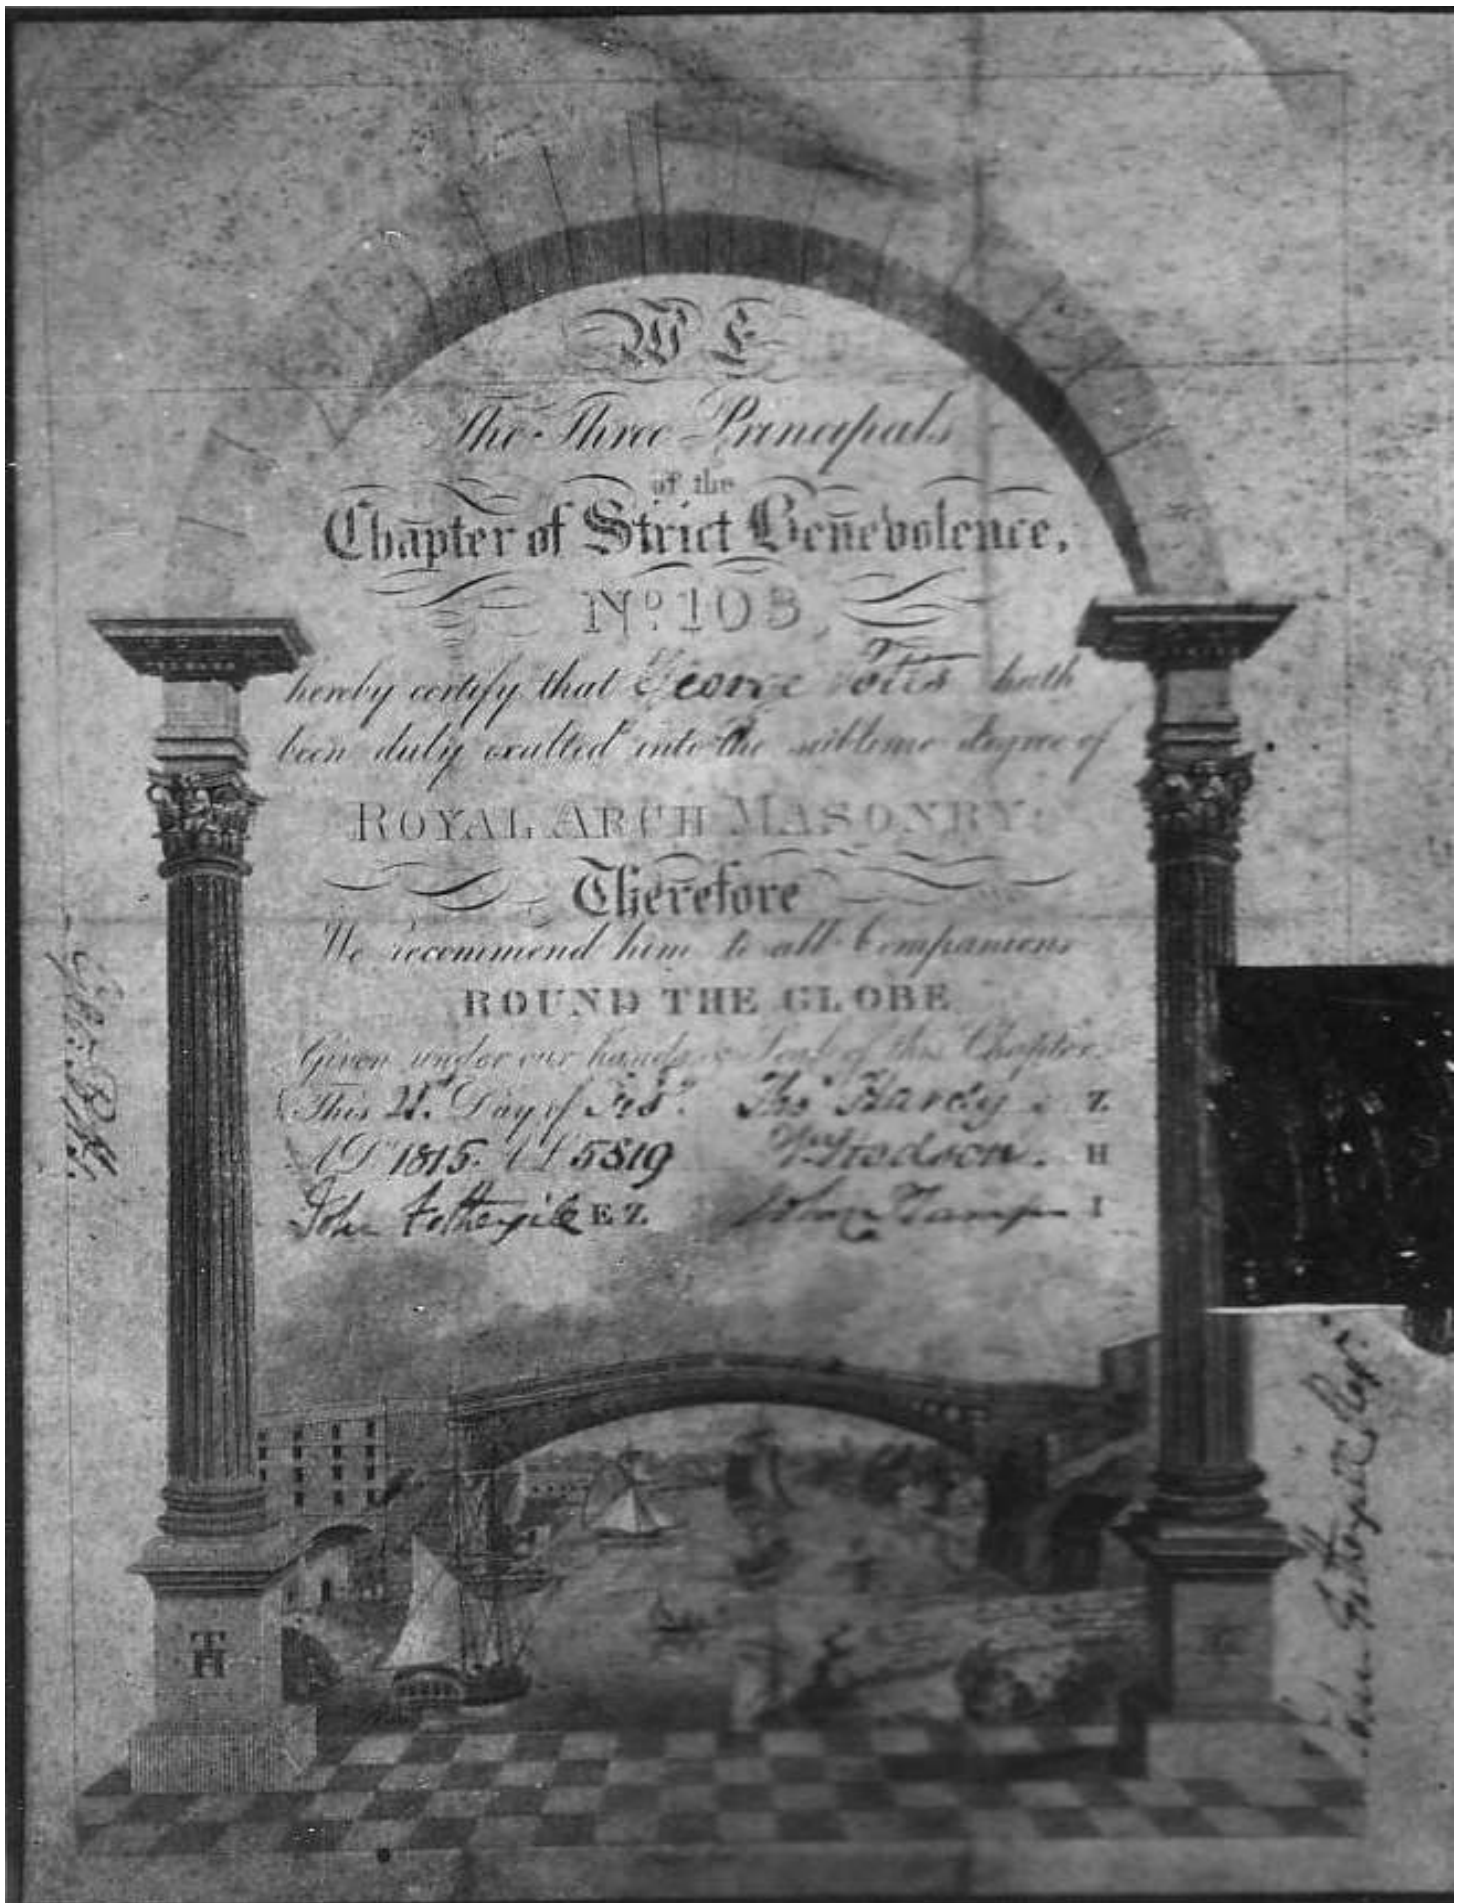 WE
The Three Principals
of the
Chapter of Strict Benevolence,
No. 103,
hereby certify that George Potts hath
been duly exalted into the sublime degree of
ROYAL ARCH MASONRY:
Therefore
We recommend him to all Companions
ROUND THE GLOBE
Given under our hands & Seal of this Chapter
This 21st Day of Feb. Thos Hardy Z
AD 1815. AL 5819 Hodson. H
John Fothergill E Z. John I
TH
John Fothergill